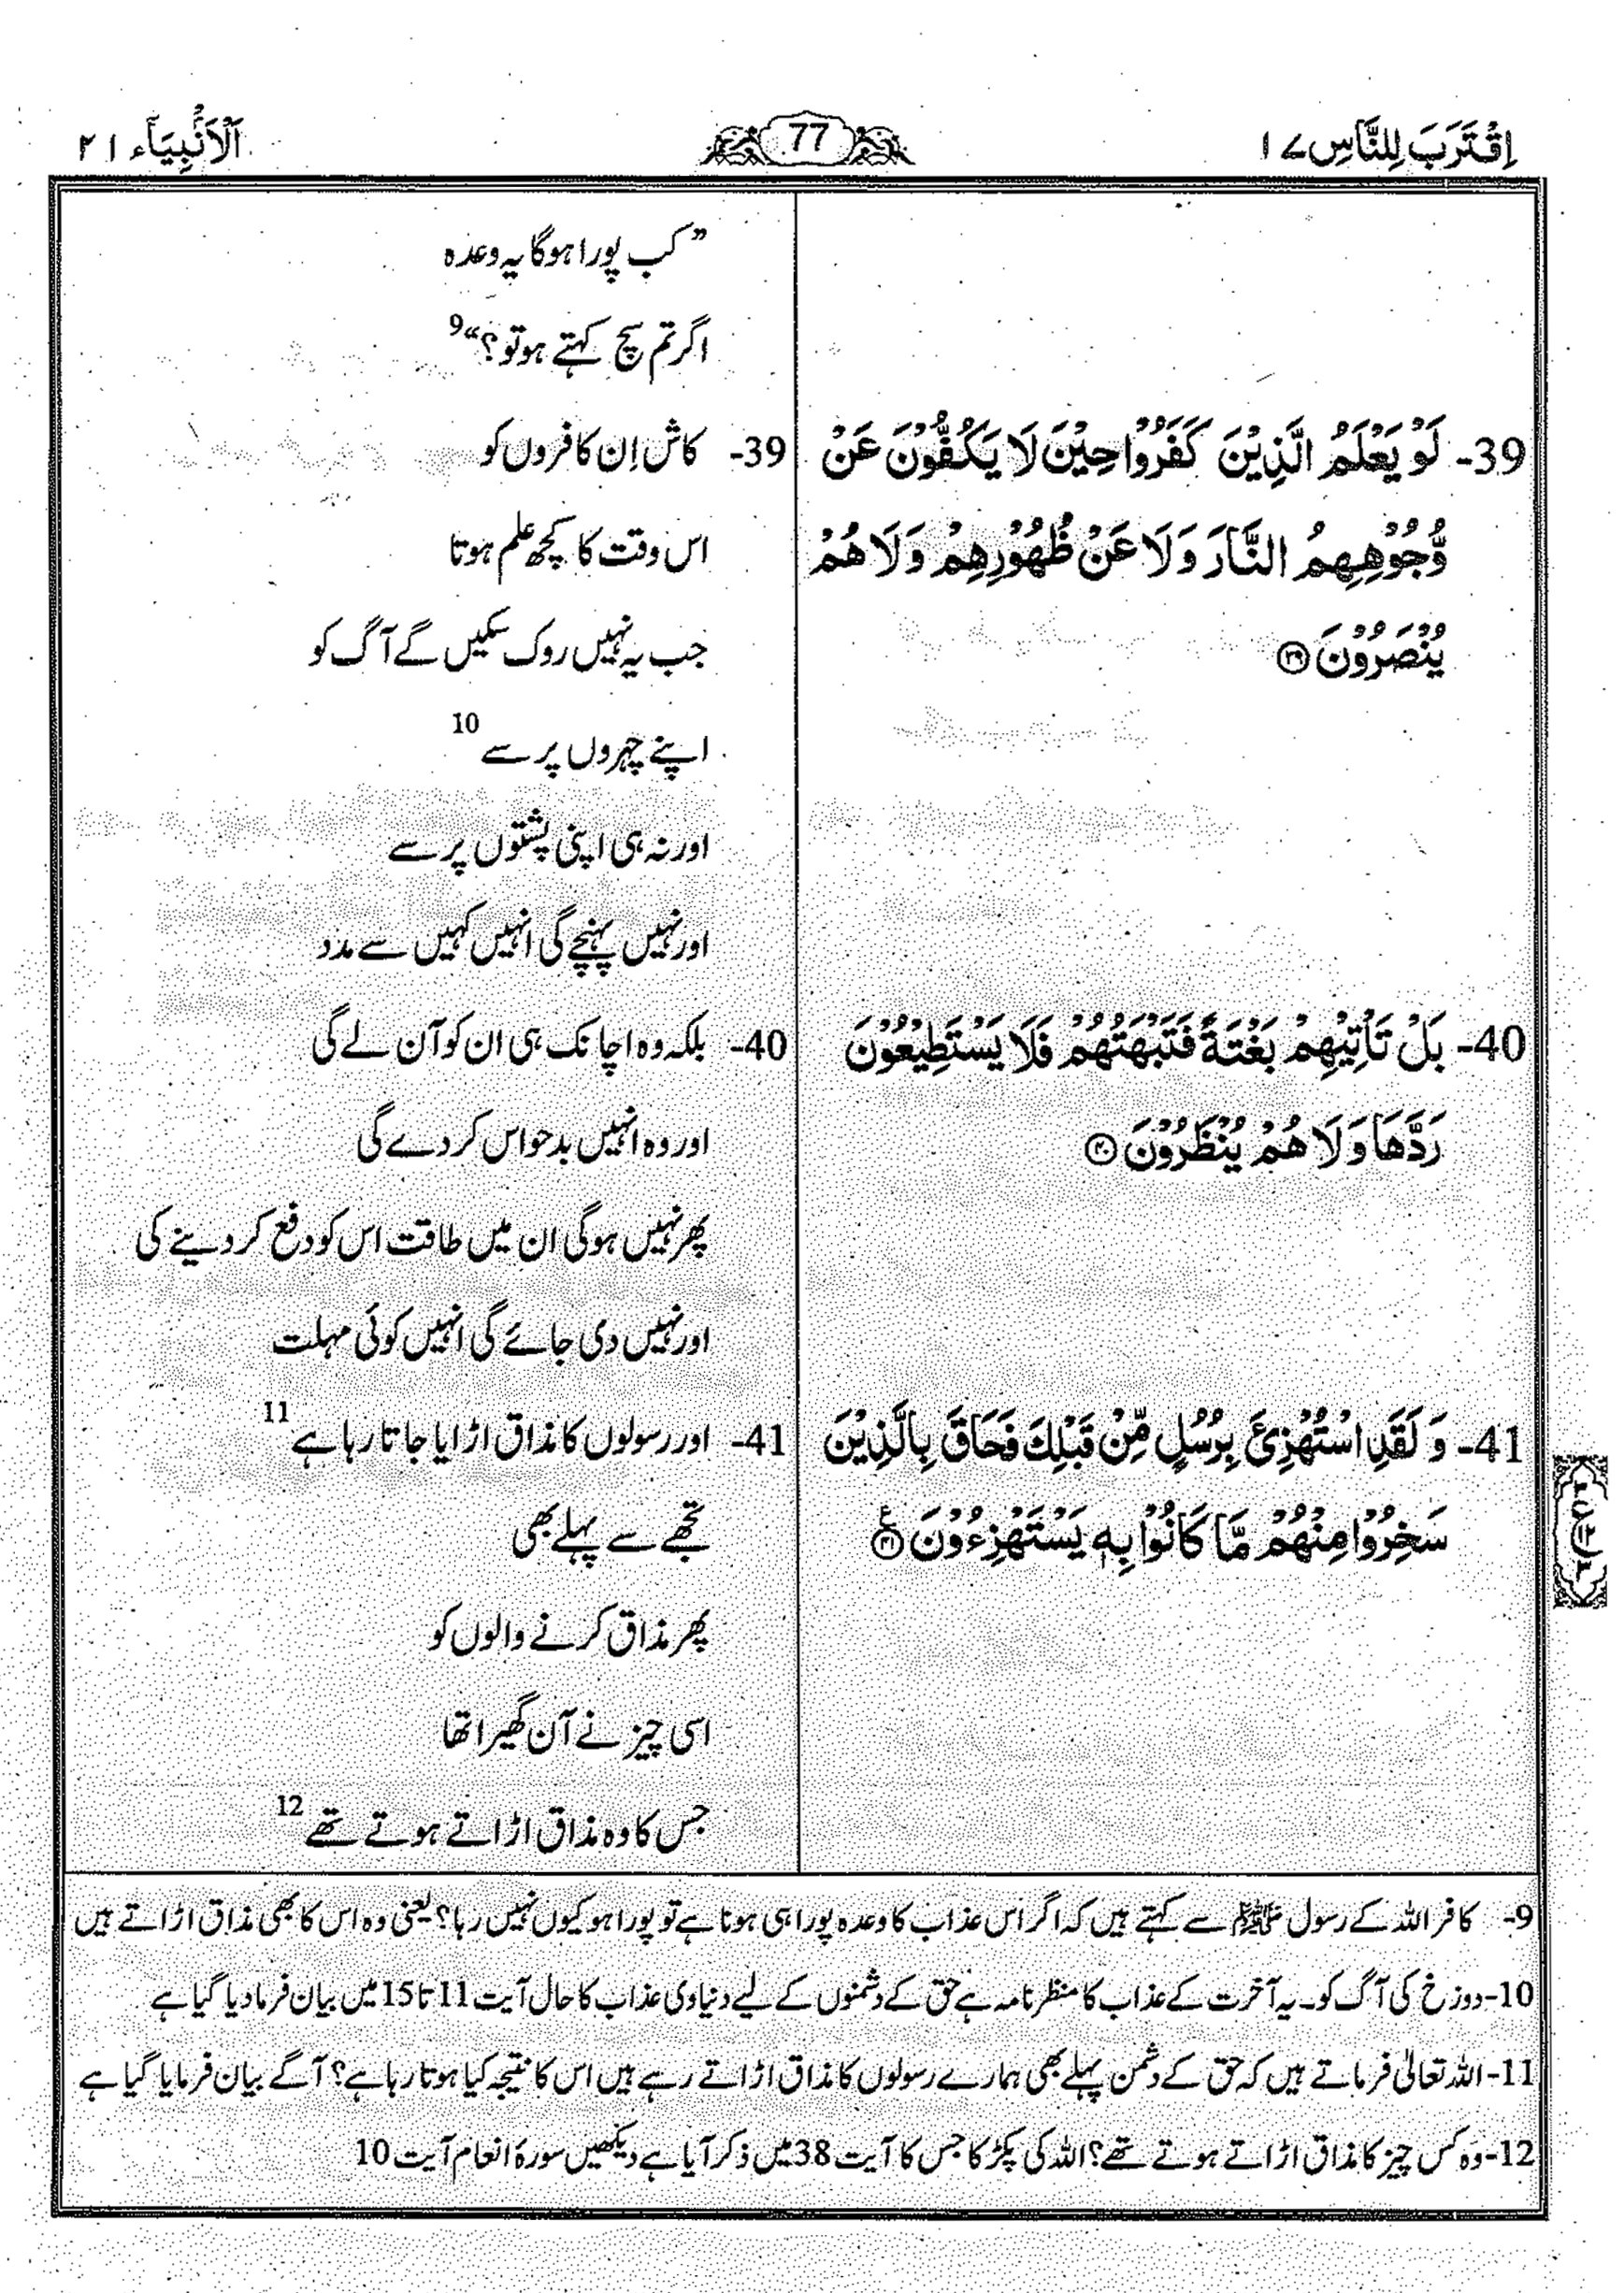 اِقْتَرَبَ لِلنَّاسِ ۱۷
77
اَلْاَنْۢبِيَآء ۲۱
” کب پورا ہوگا یہ وعدہ
اگر تم سچ کہتے ہو تو؟“ 9
39- لَوْ يَعْلَمُ الَّذِيْنَ كَفَرُوْا حِيْنَ لَا يَكُفُّوْنَ عَنْ
وُّجُوْهِهِمُ النَّارَ وَلَا عَنْ ظُهُوْرِهِمْ وَلَا هُمْ
يُنْصَرُوْنَ ۳۹
39- کاش اِن کافروں کو
اس وقت کا کچھ علم ہوتا
جب یہ نہیں روک سکیں گے آگ کو
اپنے چہروں پر سے 10
اور نہ ہی اپنی پشتوں پر سے
اور نہیں پہنچے گی انہیں کہیں سے مدد
40- بَلْ تَاْتِيْهِمْ بَغْتَةً فَتَبْهَتُهُمْ فَلَا يَسْتَطِيْعُوْنَ
رَدَّهَا وَلَا هُمْ يُنْظَرُوْنَ ۴۰
40- بلکہ وہ اچانک ہی ان کو آن لے گی
اور وہ انہیں بدحواس کر دے گی
پھر نہیں ہوگی ان میں طاقت اس کو دفع کر دینے کی
اور نہیں دی جائے گی انہیں کوئی مہلت
41- وَ لَقَدِ اسْتُهْزِئَ بِرُسُلٍ مِّنْ قَبْلِكَ فَحَاقَ بِالَّذِيْنَ
سَخِرُوْا مِنْهُمْ مَّا كَانُوْا بِهٖ يَسْتَهْزِءُوْنَ ۴۱ ع
41- اور رسولوں کا مذاق اڑایا جاتا رہا ہے 11
تجھے سے پہلے بھی
پھر مذاق کرنے والوں کو
اسی چیز نے آن گھیرا تھا
جس کا وہ مذاق اڑاتے ہوتے تھے 12
9- کافر اللہ کے رسول ﷺ سے کہتے ہیں کہ اگر اس عذاب کا وعدہ پورا ہی ہونا ہے تو پورا ہو کیوں نہیں رہا؟ یعنی وہ اس کا بھی مذاق اڑاتے ہیں
10- دوزخ کی آگ کو۔ یہ آخرت کے عذاب کا منظر نامہ ہے حق کے دشمنوں کے لیے دنیاوی عذاب کا حال آیت 11 تا 15 میں بیان فرما دیا گیا ہے
11- اللہ تعالیٰ فرماتے ہیں کہ حق کے دشمن پہلے بھی ہمارے رسولوں کا مذاق اڑاتے رہے ہیں اس کا نتیجہ کیا ہوتا رہا ہے؟ آگے بیان فرمایا گیا ہے
12- وہ کس چیز کا مذاق اڑاتے ہوتے تھے؟ اللہ کی پکڑ کا جس کا آیت 38 میں ذکر آیا ہے دیکھیں سورۂ انعام آیت 10